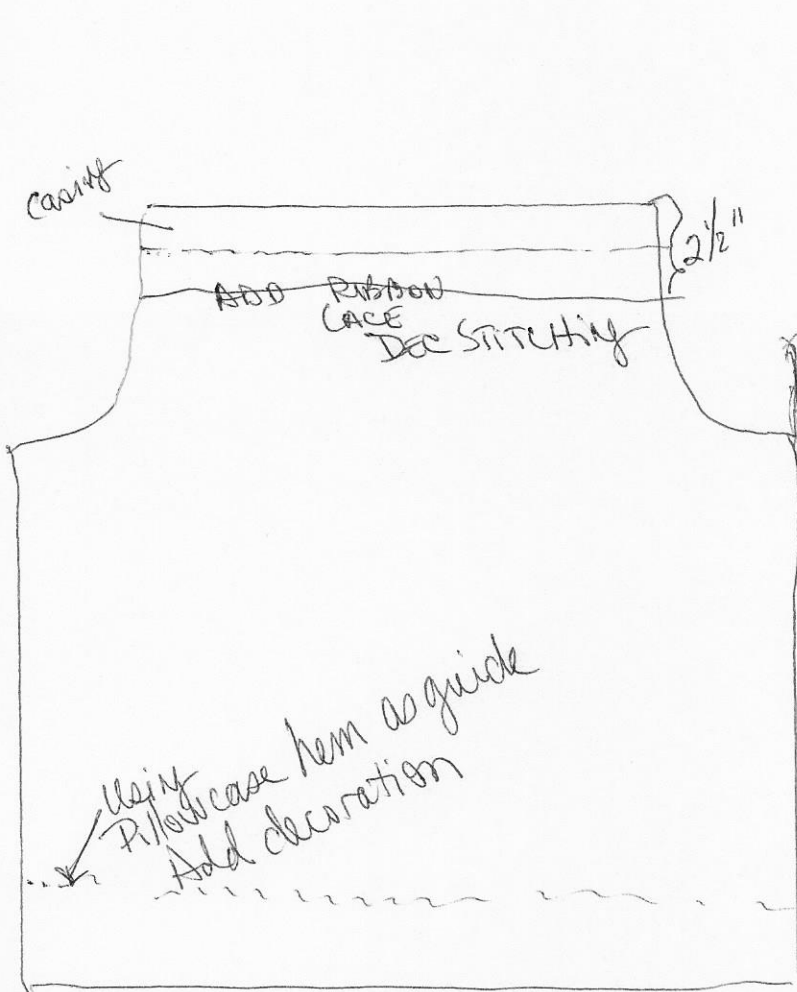 Casing
2½"
ADD RIBBON
LACE
DEC STITCHING
Using
Pillowcase hem as guide
Add decoration